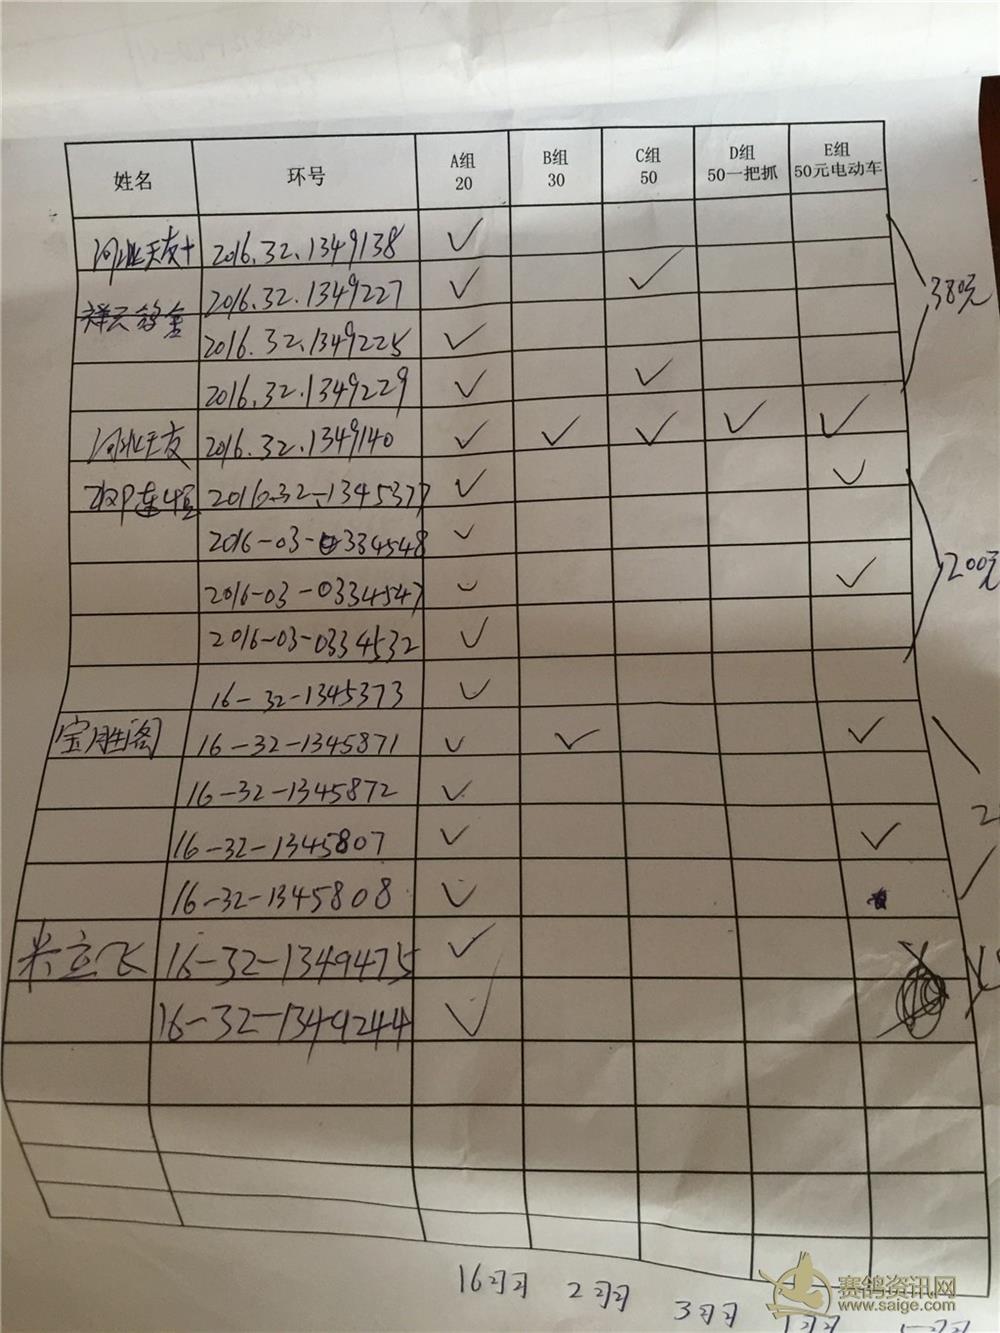 姓名 环号 A组 20 B组 30 C组 50 D组 50一把抓 E组 50元电动车
河北天友+ 2016.32.1349138 ✓
祥云鸽舍 2016.32.1349227 ✓ ✓
2016.32.1349225 ✓
2016.32.1349229 ✓ ✓
380元
河北天友 2016.32.1349140 ✓ ✓ ✓ ✓ ✓
2016.32-1345377 ✓ ✓
2016-03-0334548 ✓
2016-03-0334547 ✓ ✓
200元
2016-03-0334532 ✓
16-32-1345373 ✓
宝胜阁 16-32-1345871 ✓ ✓ ✓
16-32-1345872 ✓
16-32-1345807 ✓ ✓
16-32-1345808 ✓
米立飞 16-32-1349475 ✓
16-32-1349244 ✓
16羽 2羽 3羽 1羽
赛鸽资讯网
www.saige.com